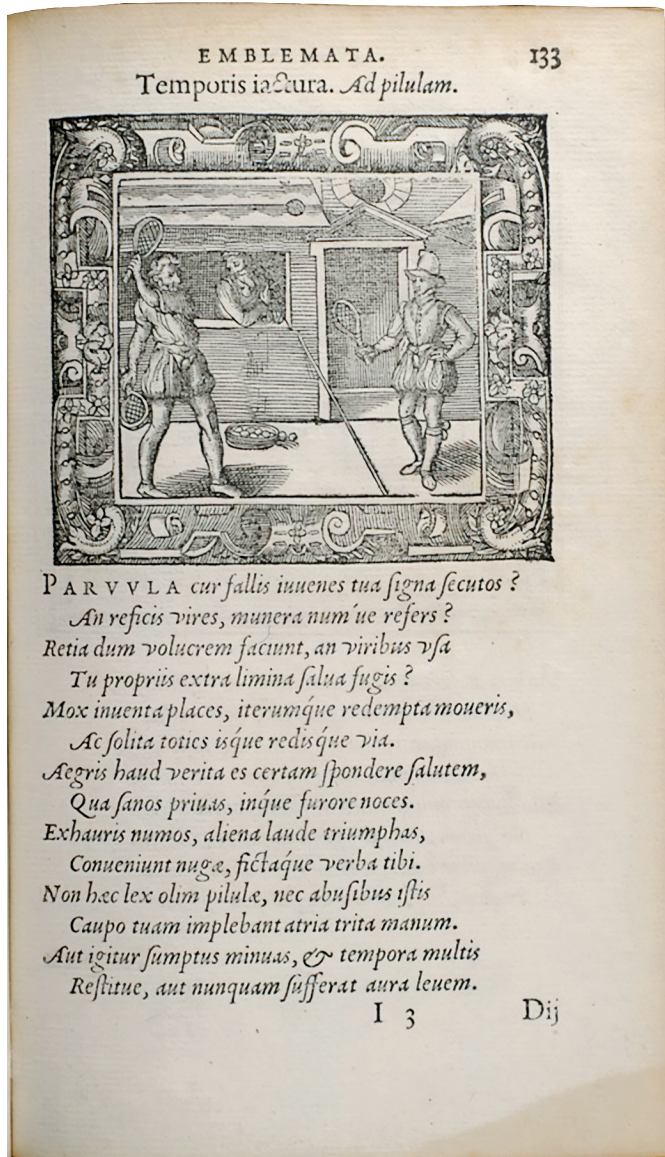 EMBLEMATA. 133
Temporis iactura. Ad pilulam.
PARVVLA cur fallis iuuenes tua ſigna ſecutos ?
An reficis vires, munera num'ue refers ?
Retia dum volucrem faciunt, an viribus vſa
Tu propriis extra limina ſalua fugis ?
Mox inuenta places, iterumq́ue redempta moueris,
Ac ſolita toties iſq́ue rediſq́ue via.
Aegris haud verita es certam ſpondere ſalutem,
Qua ſanos priuas, inq́ue furore noces.
Exhauris numos, aliena laude triumphas,
Conueniunt nugæ, fictaq́ue verba tibi.
Non hæc lex olim pilulæ, nec abuſibus iſtis
Caupo tuam implebant atria trita manum.
Aut igitur ſumptus minuas, & tempora multis
Reſtitue, aut nunquam ſufferat aura leuem.
I 3 Dij